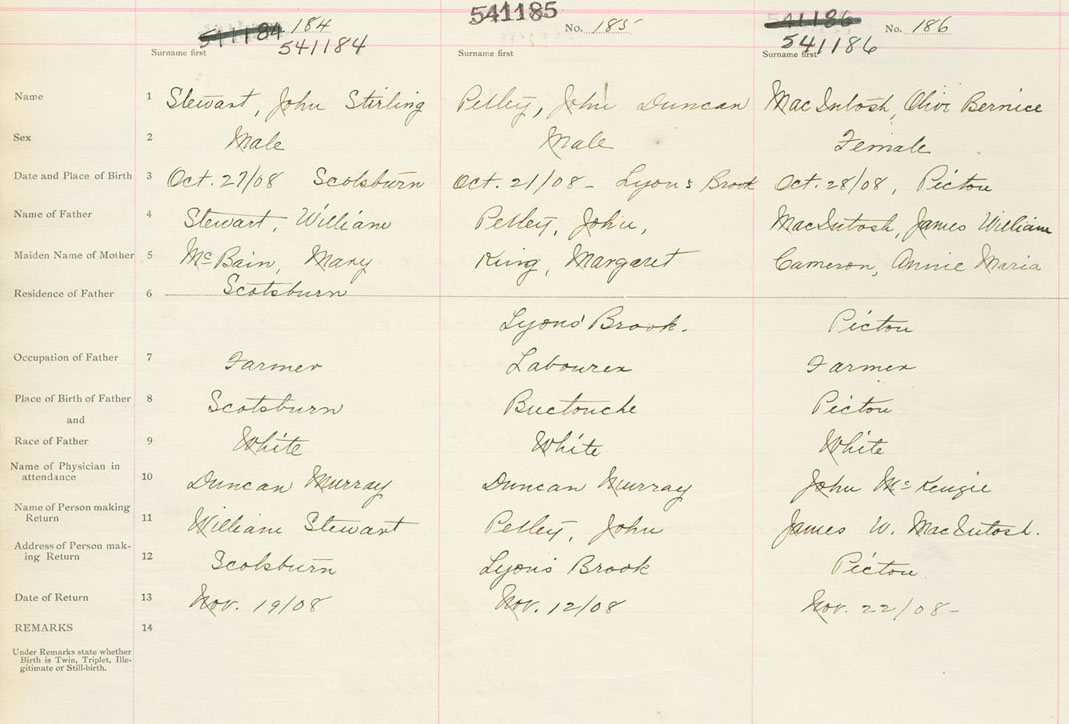 541184 184 541185 No. 185 41186 No. 186
541184 541186
Surname first Surname first Surname first
Name 1 Stewart, John Stirling Petley, John Duncan MacIntosh, Olive Bernice
Sex 2 Male Male Female
Date and Place of Birth 3 Oct. 27/08 Scotsburn Oct. 21/08 - Lyons Brook Oct. 28/08, Pictou
Name of Father 4 Stewart, William Petley, John, MacIntosh, James William
Maiden Name of Mother 5 McBain, Mary King, Margaret Cameron, Annie Maria
Residence of Father 6 Scotsburn
Lyons' Brook. Pictou
Occupation of Father 7 Farmer Labourer Farmer
Place of Birth of Father 8 Scotsburn Buctouche Pictou
and
Race of Father 9 White White White
Name of Physician in
attendance 10 Duncan Murray Duncan Murray John McKenzie
Name of Person making
Return 11 William Stewart Petley, John James W. MacIntosh.
Address of Person mak-
ing Return 12 Scotsburn Lyons Brook Pictou
Date of Return 13 Nov. 19/08 Nov. 12/08 Nov. 22/08-
REMARKS 14
Under Remarks state whether
Birth is Twin, Triplet, Ille-
gitimate or Still-birth.